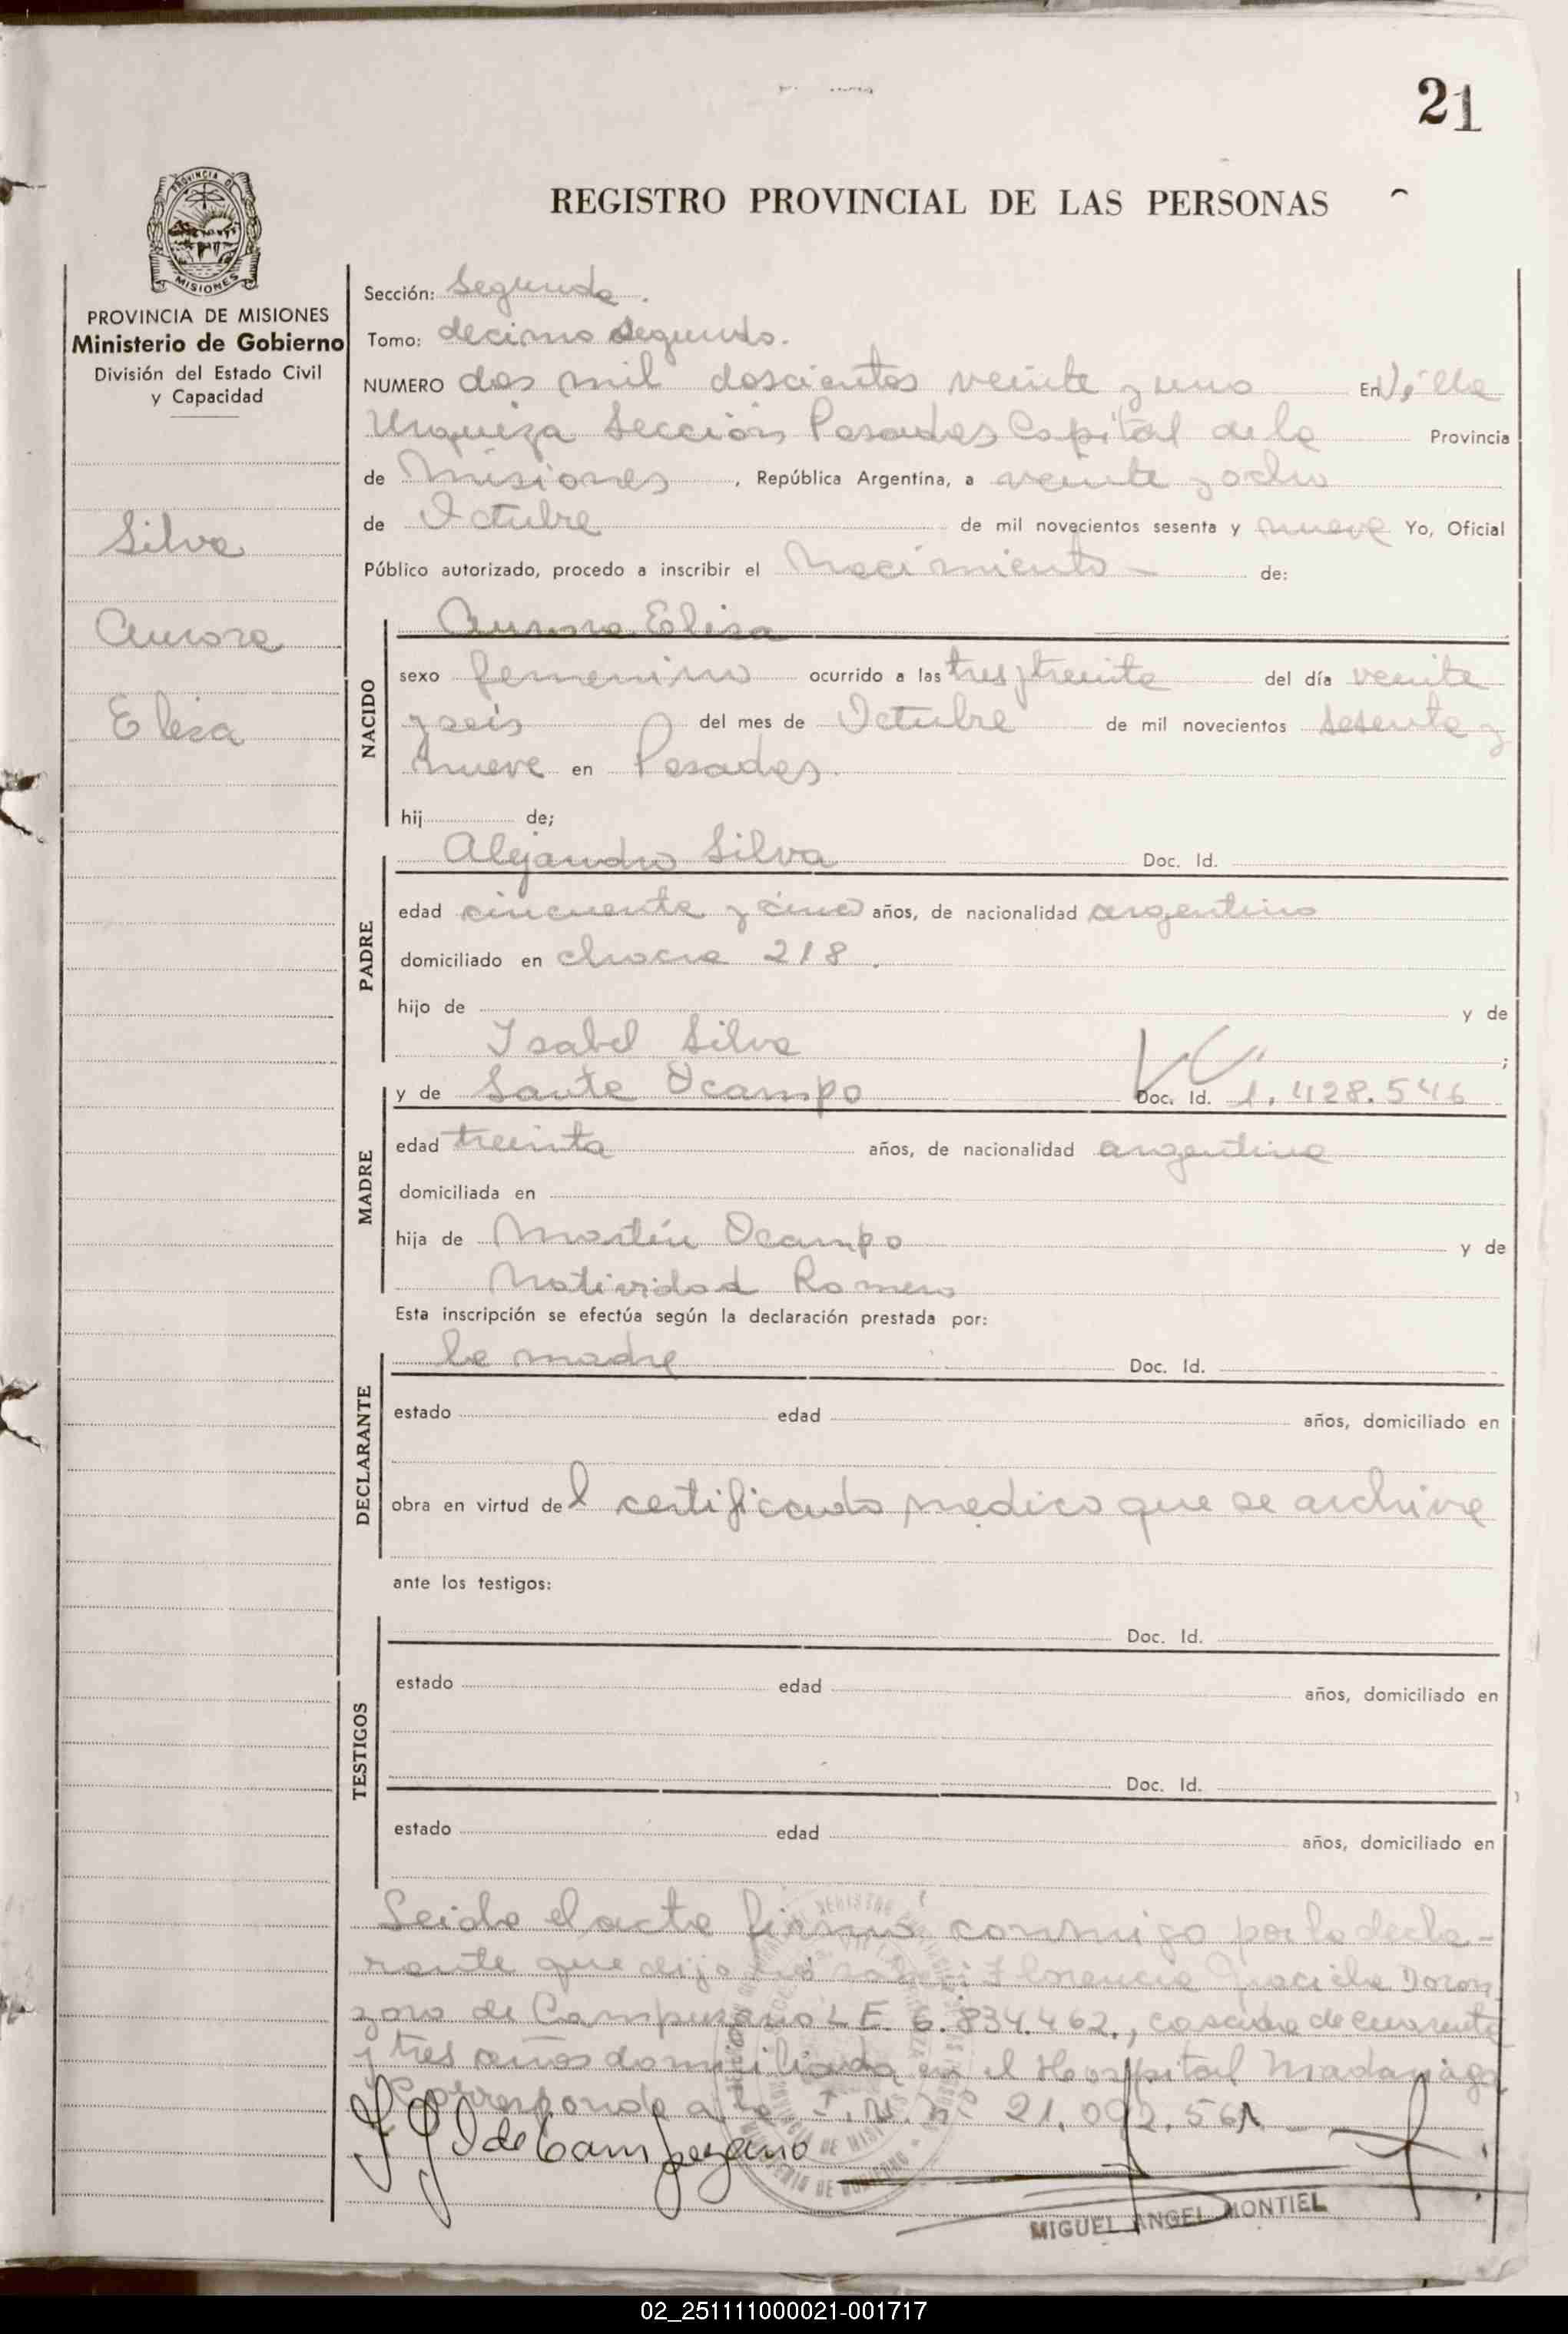 21
REGISTRO PROVINCIAL DE LAS PERSONAS
PROVINCIA DE MISIONES
Ministerio de Gobierno
División del Estado Civil
y Capacidad
Silva
Aurora
Elisa
Sección: Segunda.
Tomo: decimo segundo.
NUMERO dos mil doscientos veinte y uno En Villa
Urquiza Sección Posadas Capital de la Provincia
de Misiones, República Argentina, a veinte y ocho
de Octubre de mil novecientos sesenta y nueve Yo, Oficial
Público autorizado, procedo a inscribir el Nacimiento - de:
NACIDO
Aurora Elisa
sexo femenino ocurrido a las tres y treinta del día veinte
y seis del mes de Octubre de mil novecientos sesenta y
nueve en Posadas.
hij de;
PADRE
Alejandro Silva Doc. Id.
edad cincuenta y cinco años, de nacionalidad argentino
domiciliado en chacra 218.
hijo de y de
Isabel Silva ;
MADRE
y de Santa Ocampo Doc. Id. 1.428.546
edad treinta años, de nacionalidad argentina
domiciliada en
hija de Martín Ocampo y de
Natividad Romero
Esta inscripción se efectúa según la declaración prestada por:
DECLARANTE
la madre Doc. Id.
estado edad años, domiciliado en
obra en virtud del certificado medico que se archiva
ante los testigos:
TESTIGOS
Doc. Id.
estado edad años, domiciliado en
Doc. Id.
estado edad años, domiciliado en
Leida el acta firmó conmigo por la decla-
rante que dijo no saber Florencia Graciela
de L E. 6.834.462., casada de cuarenta
y tres años domiciliada en el Hospital Madariaga
Corresponde a la 21.092.561
MIGUEL ANGEL MONTIEL
02_251111000021-001717